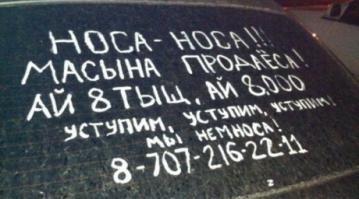 НОСА-НОСА!!!
МАСЫНА ПРОДАЁСА!
АЙ 8 ТЫЩ, АЙ 8,000
УСТУПИМ, УСТУПИМ, УСТУПИМ!
МЫ НЕМНОСА!
8-707-216-22-11